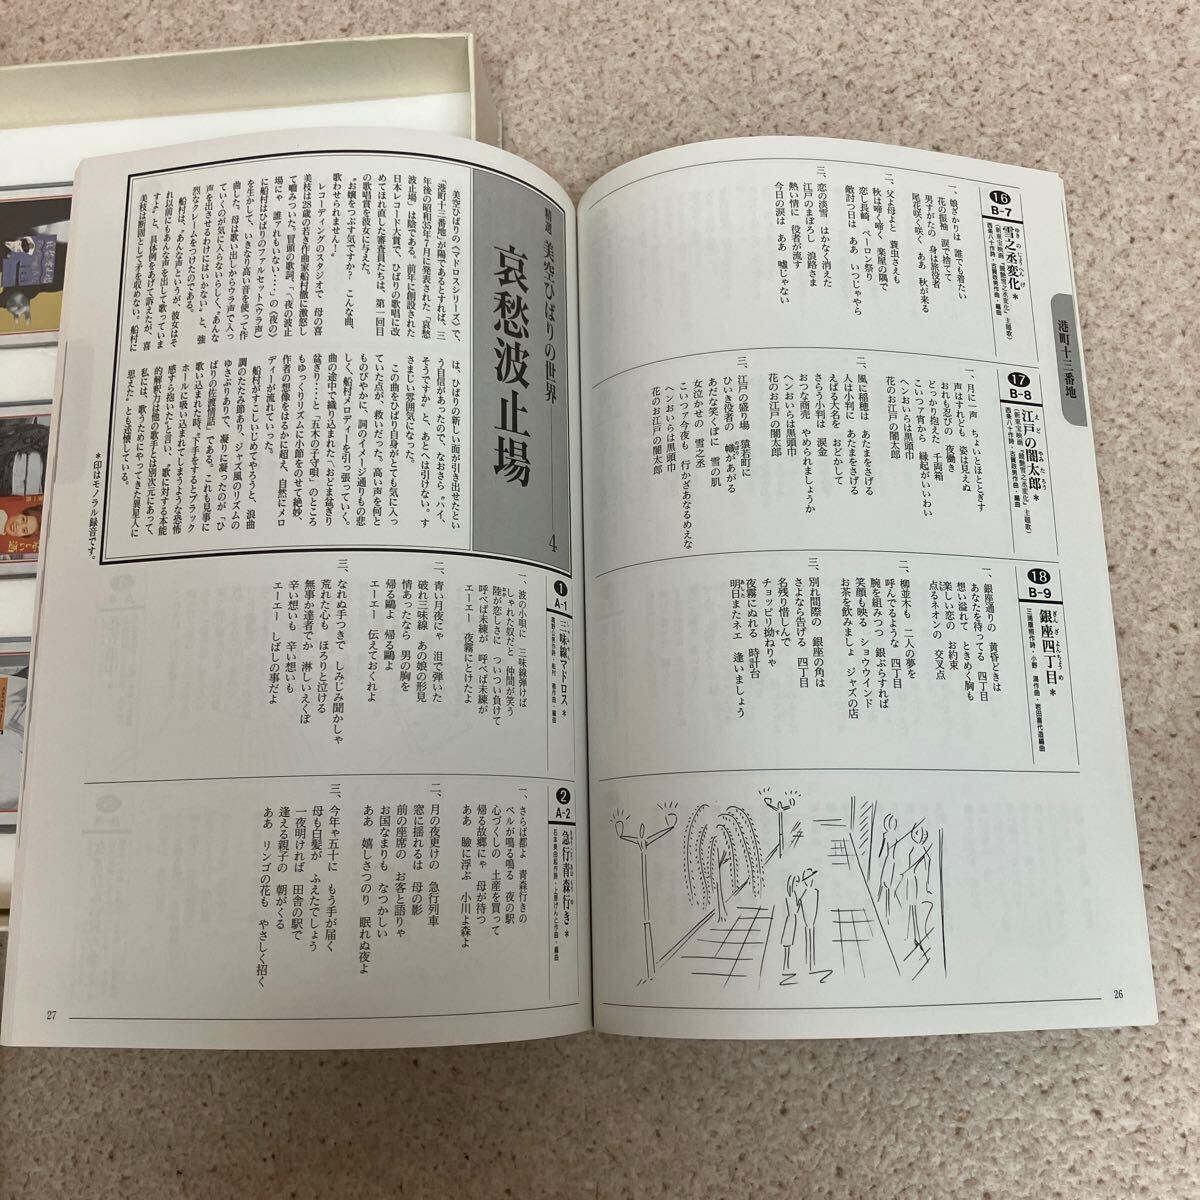 港町十三番地
16
B-7
雪之丞変化*
ゆきのじょうへんげ
(新東宝映画「競艶雪之丞変化」主題歌)
西条八十作詩・古賀政男作曲・編曲
一、娘ざかりは 誰でも着たい
花の振袖 涙で捨てて
男すがたの 身は旅役者
尾花咲く咲く ああ 秋が来る
二、父よ母よと 蓑虫さえも
秋は啼く啼く 楽屋の隅で
恋し長崎 ペーロン祭り
敵討つ日は ああ いつじゃやら
三、恋の淡雪 はかなく消えた
江戸のまぼろし 浪路さま
熱い情に 役者が流す
今日の涙は ああ 嘘じゃない
17
B-8
江戸の闇太郎*
えど やみたろう
(新東宝映画「競艶雪之丞変化」主題歌)
西条八十作詩・古賀政男作曲・編曲
一、月に一声 ちょいとほととぎす
声はすれども 姿は見えぬ
おれも忍びの 夜働き
どっかり抱えた 千両箱
こいつァ宵から 縁起がいいわい
ヘンおいらは黒頭巾
花のお江戸の闇太郎
二、風に稲穂は あたまをさげる
人は小判に あたまをさげる
えばる大名を おどかして
さらう小判は 涙金
おつな商売 やめられましょうか
ヘンおいらは黒頭巾
花のお江戸の闇太郎
三、江戸の盛り場 猿若町に
ひいき役者の 幟があがる
あだな笑くぼに 雪の肌
女泣かせの 雪之丞
こいつァ今夜も 行かざあなるめえな
ヘンおいらは黒頭巾
花のお江戸の闇太郎
18
B-9
銀座四丁目*
ぎんざよんちょうめ
三浦康照作詩・小野 満作曲・岩田喜代造編曲
一、銀座通りの 黄昏どきは
あなたを待ってる 四丁目
想い溢れて ときめく胸も
楽しい恋の お約束
点るネオンの 交叉点
二、柳並木も 二人の夢を
呼んでるような 四丁目
腕を組みつつ 銀ぶらすれば
笑顔も映る ショウウインド
お茶を飲みましょ ジャズの店
三、別れ間際の 銀座の角は
さよなら告げる 四丁目
名残り惜しんで
チョッピリ拗ねりゃ
夜霧にぬれる 時計台
明日またネエ 逢いましょう
26
精選 美空ひばりの世界
哀愁波止場
4
美空ひばりの〈マドロスシリーズ〉で、
「港町十三番地」が陽であるとすれば、三
年後の昭和35年7月に発表された「哀愁
波止場」は陰である。前年に創設された
日本レコード大賞で、ひばりの歌唱に改
めてほれ直した審査員たちは、第一回目
の歌唱賞を彼女に与えた。
〝お嬢をつぶす気ですか? こんな曲、
歌わせられません!〟
レコーディングのスタジオで 母の喜
美枝は28歳の若き作曲家船村徹に激怒し
て嚙みついた。冒頭の歌詞、「夜の波止
場にゃ 誰アれもいない…」の〈夜の〉
に船村はひばりのファルセット(ウラ声)
を生かして、いきなり高い音を使って作
曲した。母は歌い出しからウラ声で入っ
ていくのが気に入らないらしく、〝あんな
声を出させるわけにはいかない〟と、強
烈なクレームをつけたのである。
船村は〝あんな声というが、彼女はそ
れ以前にもあんな声を出して歌っていま
すよ〟と、具体例をあげて訴えたが、喜
美枝は断固として矛を収めない。船村に
は、ひばりの新しい面が引き出せたとい
う自信があったので、なおさら〝ハイ、
そうですか〟と、あとへは引けない。す
さまじい雰囲気になった。
この曲をひばり自身がとても気に入っ
ていた点が、救いだった。高い声を何と
ものびやかに、詞のイメージ通りもの悲
しく、船村メロディーを引っ張っていく。
曲の途中で織り込まれた「おどま盆ぎり
盆ぎり…」と「五木の子守唄」のところ
もゆっくりリズムに小節をのせて絶妙、
作者の想像をはるかに超え、自然にメロ
ディーが流れていった。
船村がすこしいじめてやろうと、浪曲
調のたたみ節あり、ジャズ風のリズムの
ゆさぶりありで、凝りに凝ったのが「ひ
ばりの佐渡情話」である。これも見事に
歌い込まれた時、〝下手をするとブラック
ホールに吸い込まれてしまうような恐怖
感すら抱いた〟と言い、〝歌に対する本能
的解釈力は他の歌手とは別次元にあって、
私には、歌うためにやってきた異星人に
思えた〟とも述懐している。
*印はモノラル録音です。
1
A-1
三味線マドロス*
高野公男作詩・船村 徹作曲・編曲
一、波の小唄に 三味線弾けば
しゃれた奴だと 仲間が笑う
陸が恋しさに ついつい負けて
呼べば未練が 呼べば未練が
エーエー 夜霧にとけたよ
二、青い月夜にゃ 泪で弾いた
破れ三味線 あの娘の形見
情あったなら 男の胸を
帰る鷗よ 帰る鷗よ
エーエー 伝えておくれよ
三、なれぬ手つきで しみじみ聞かしゃ
荒れた心も ほろりと泣ける
無事か達者でか 淋しいえくぼ
辛い想いも 辛い想いも
エーエー しばしの事だよ
2
A-2
急行青森行き*
石本美由起作詩・上原げんと作曲・編曲
一、さらば都よ 青森行きの
ベルが鳴る鳴る 夜の駅
心づくしの 土産を買って
帰る故郷にゃ 母が待つ
ああ 瞼に浮ぶ 小川よ森よ
二、月の夜更けの 急行列車
窓に揺れるは 母の影
前の座席の お客と語りゃ
お国なまりも なつかしい
ああ 嬉しさつのり 眠れぬ夜よ
三、今年ゃ五十に もう手が届く
母も白髪が ふえたでしょう
一夜明ければ 田舎の駅で
逢える親子の 朝がくる
ああ リンゴの花も やさしく招く
27